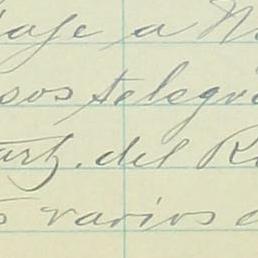 aje a
sos telegra
art. del R
s varios